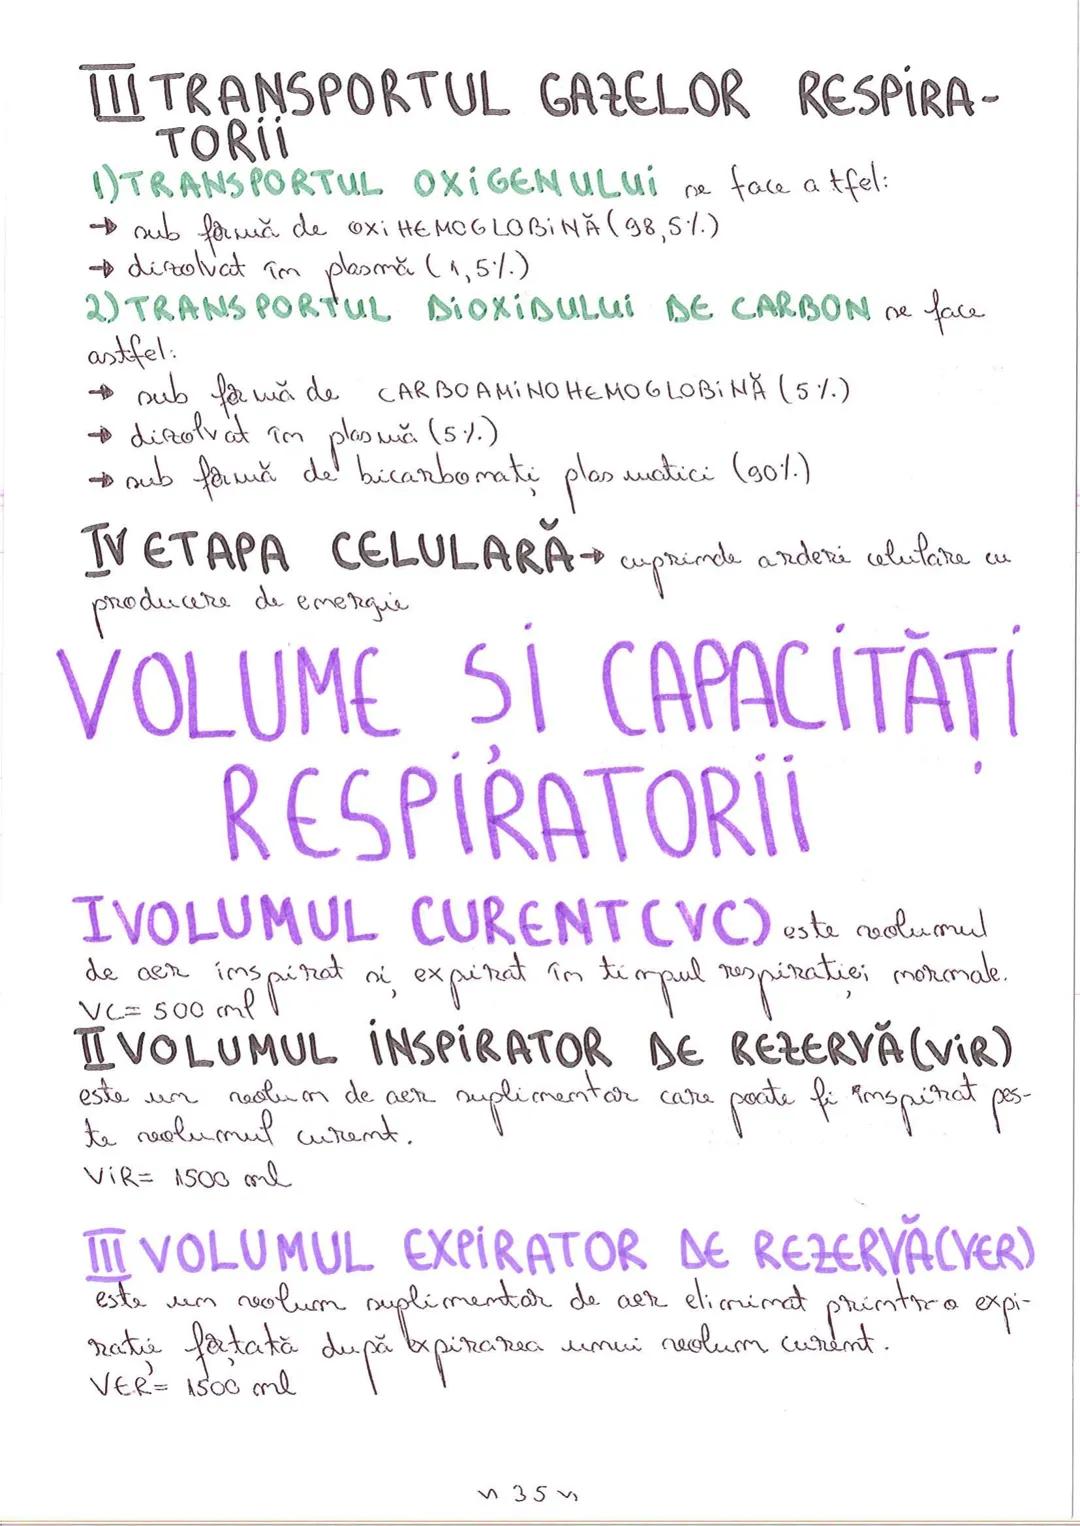 III TRANSPORTUL GAZELOR RESPIRA-
TORII
1) TRANSPORTUL OXIGENULUI se face a tfel:
→ sub formă de OXIHEMOGLOBINĂ (98,5%)
→ dizolvat în plasmă (1,5%)
2) TRANSPORTUL DIOXIDULUI DE CARBON se face
astfel:
→ sub formă de CARBOAMINOHEMOGLOBINĂ (5%)
→ dizolvat în plasmă (5%)
→ sub formă de bicarbonați plasmatici (90%)
IV ETAPA CELULARĂ → cuprinde arderi celulare cu
producere de energie
VOLUME ȘI CAPACITĂȚI
RESPIRATORII
I VOLUMUL CURENT (VC) este volumul
de aer inspirat și expirat în timpul respirației normale.
VC= 500 ml
II VOLUMUL INSPIRATOR DE REZERVĂ (VIR)
este un volum de aer suplimentar care poate fi inspirat pes-
te volumul curent.
VIR= 1500 ml
III VOLUMUL EXPIRATOR DE REZERVĂ (VER)
este un volum suplimentar de aer eliminat printr-o expi-
rație forțată după expirarea unui volum curent.
VER= 1500 ml
~ 35 ~